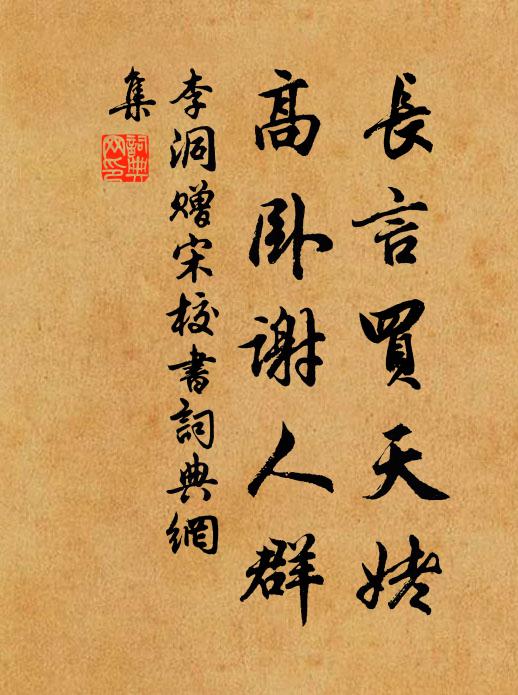 長言買天姥
高卧謝人群
李洞贈宋校書詞典網
集
詞典
網印